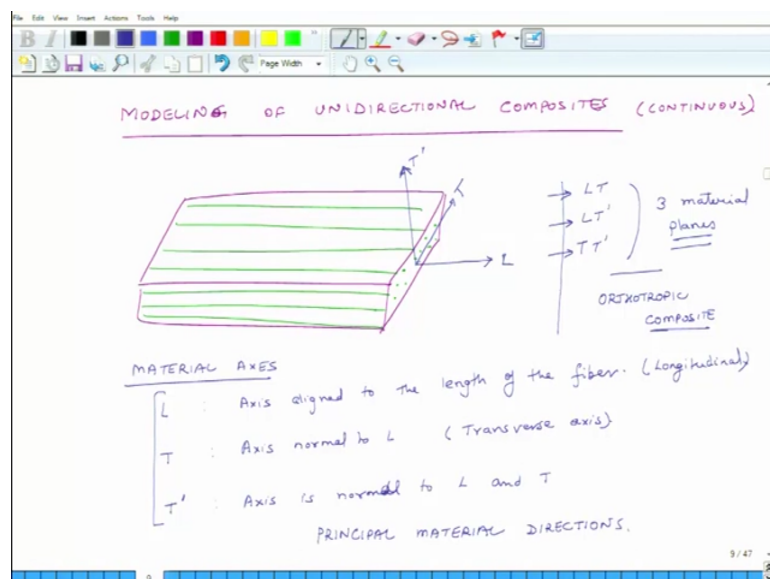 File Edit View Insert Actions Tools Help
B I
Page Width
MODELING OF UNIDIRECTIONAL COMPOSITES (CONTINUOUS)
T'
T
L
LT
LT'
TT'
3 material
planes
ORTHOTROPIC
COMPOSITE
MATERIAL AXES
L : Axis aligned to the length of the fiber. (Longitudinal)
T : Axis normal to L (Transverse axis)
T' : Axis is normal to L and T
PRINCIPAL MATERIAL DIRECTIONS.
9 / 47
9